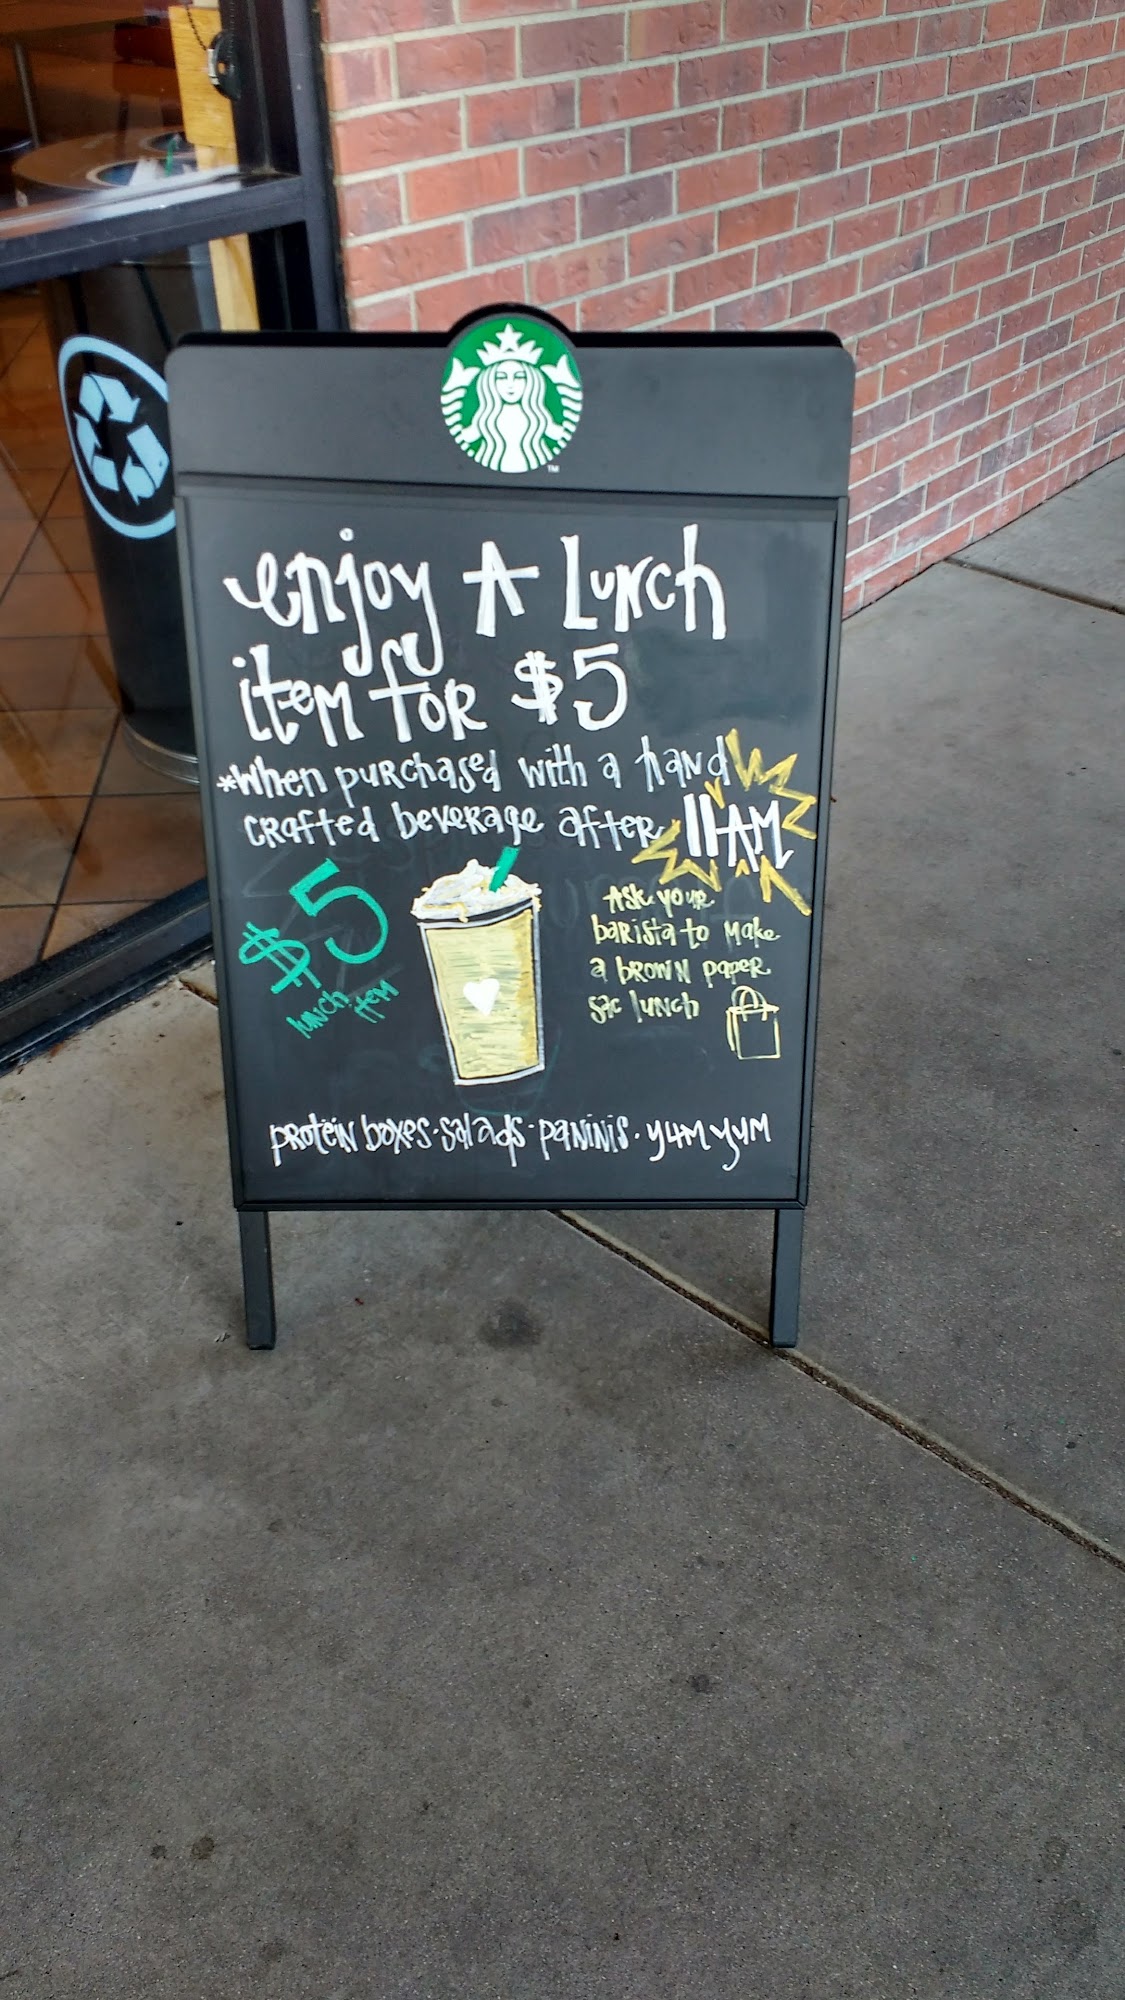 TM
enjoy A Lunch
item for $5
*When purchased with a hand
crafted beverage after 11AM
$5
lunch
item
Ask your
barista to make
a brown paper
sac lunch
protein boxes · salads · paninis · yum yum